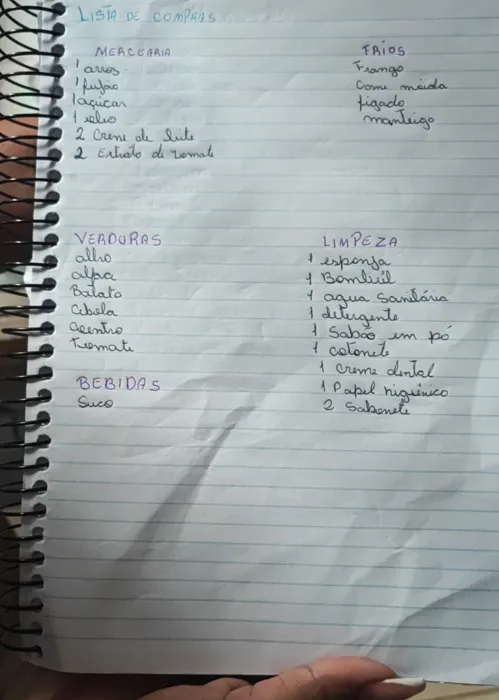 LISTA DE COMPRAS
MERCEARIA
1 arros
1 fujão
1 açúcar
1 oleo
2 Creme de leite
2 Extrato de tomate
FRIOS
Frango
Carne moida
figado
manteiga
VERDURAS
alho
alfac
Batata
Cebola
Coentro
Tomate
BEBIDAS
Suco
LIMPEZA
1 esponja
1 Bombril
1 agua sanitária
1 detergente
1 Sabão em pó
1 cotonete
1 creme dental
1 Papel higiênico
2 Sabonete